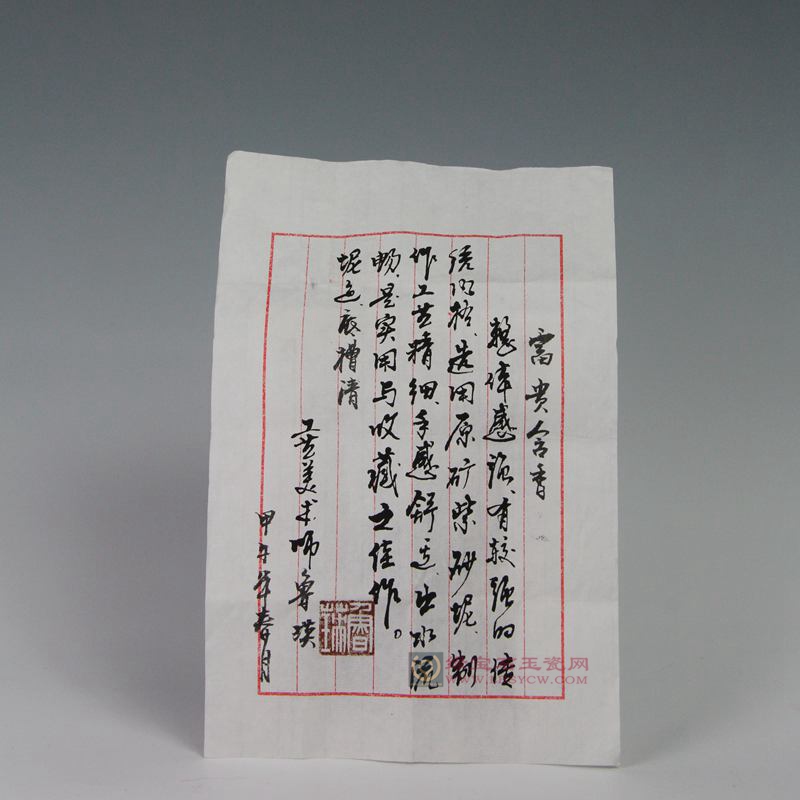 富贵含香
整体感强、有较强的传
统风格、选用原矿紫砂泥、制
作工艺精细、手感舒适、出水流
畅、是实用与收藏之佳作。
泥色：底槽清
工艺美术师鲁瑛
甲午年春月
玉瓷网